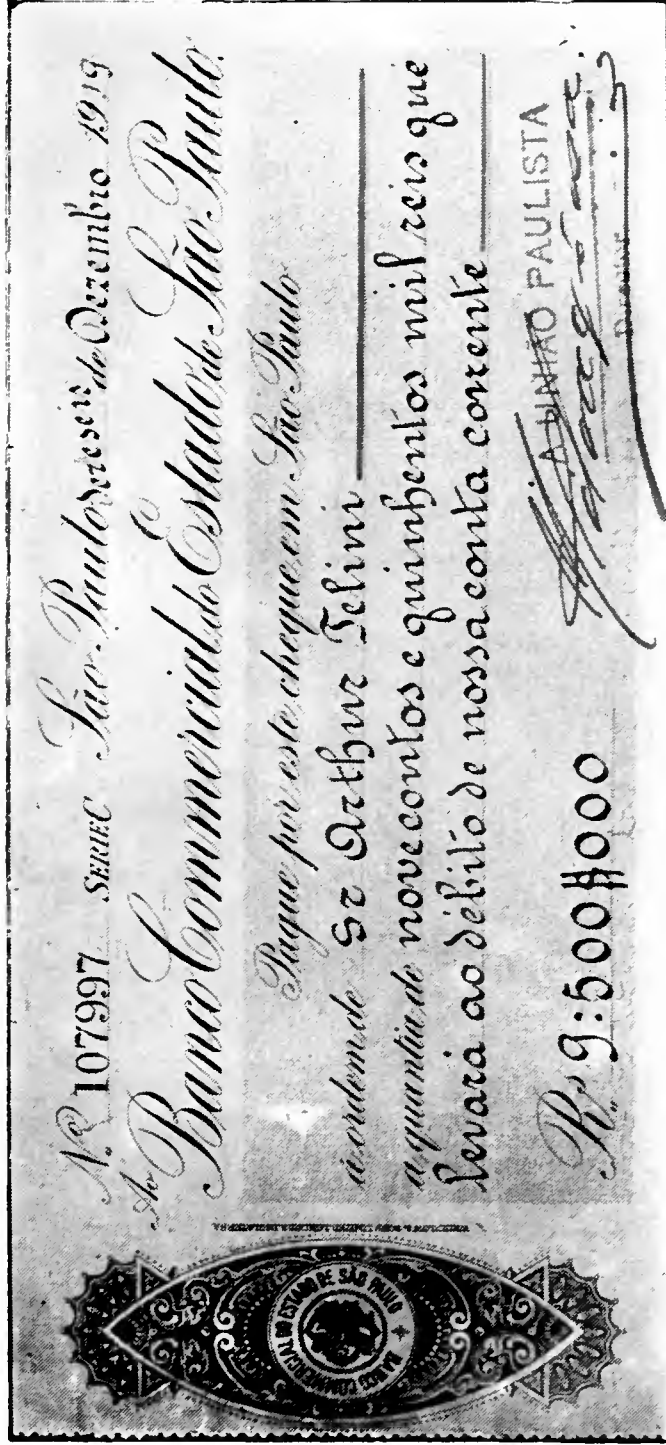 Nº 107997 SERIE C São Paulo, dezeseis de Dezembro 1919
Ao Banco Commercial do Estado de São Paulo.
Pague por este cheque em São Paulo
á ordem de Sr Arthur Telini
a quantia de nove contos e quinhentos mil reis que
levará ao débito de nossa conta corrente
Rs 9:500$000
A UNIÃO PAULISTA
BANCO COMMERCIAL DO ESTADO DE SÃO PAULO